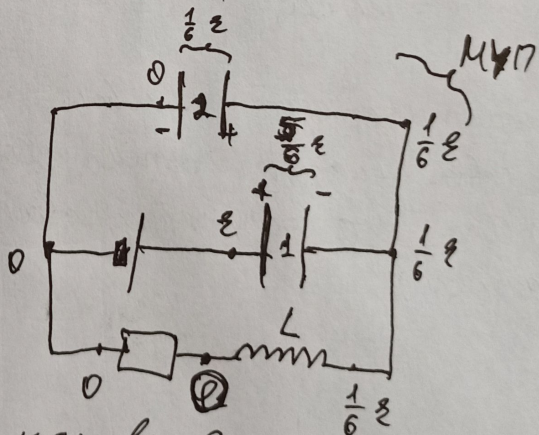 1/6 ε
МУП
0 2
- +
5/6 ε
1/6 ε
+ -
ε
1
0
1/6 ε
L
0
φ
1/6 ε